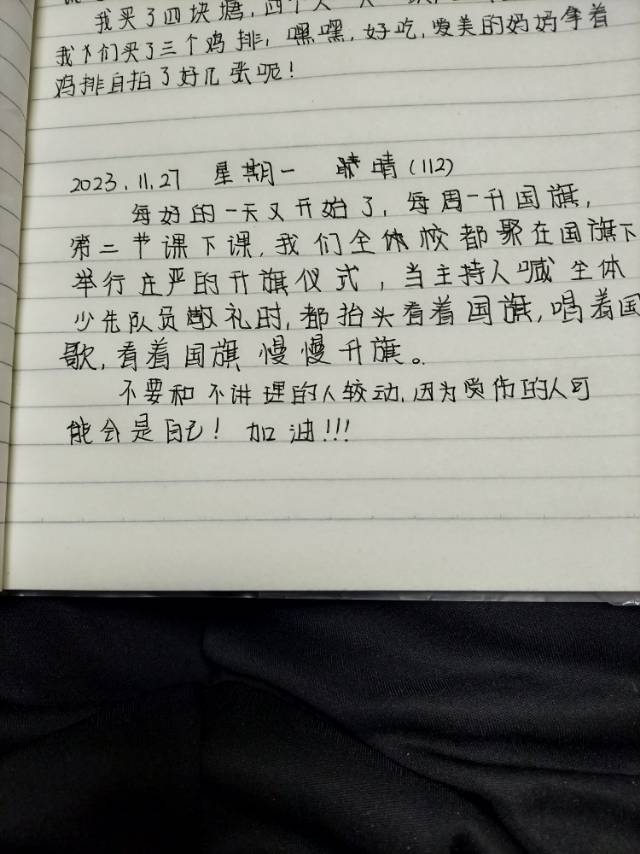 我买了四块塘，四个人一人一
我们买了三个鸡排，嘿嘿，好吃，爱美的妈妈拿着
鸡排自拍了好几张呢！
2023.11.27 星期一 晴（112）
每好的一天又开始了，每周一升国旗，
第二节课下课，我们全体校都聚在国旗下
举行庄严的升旗仪式，当主持人喊全体
少先队员敬礼时，都抬头看着国旗，唱着国
歌，看着国旗慢慢升旗。
不要和不讲理的人较动，因为受伤的人可
能会是自己！加油！！！